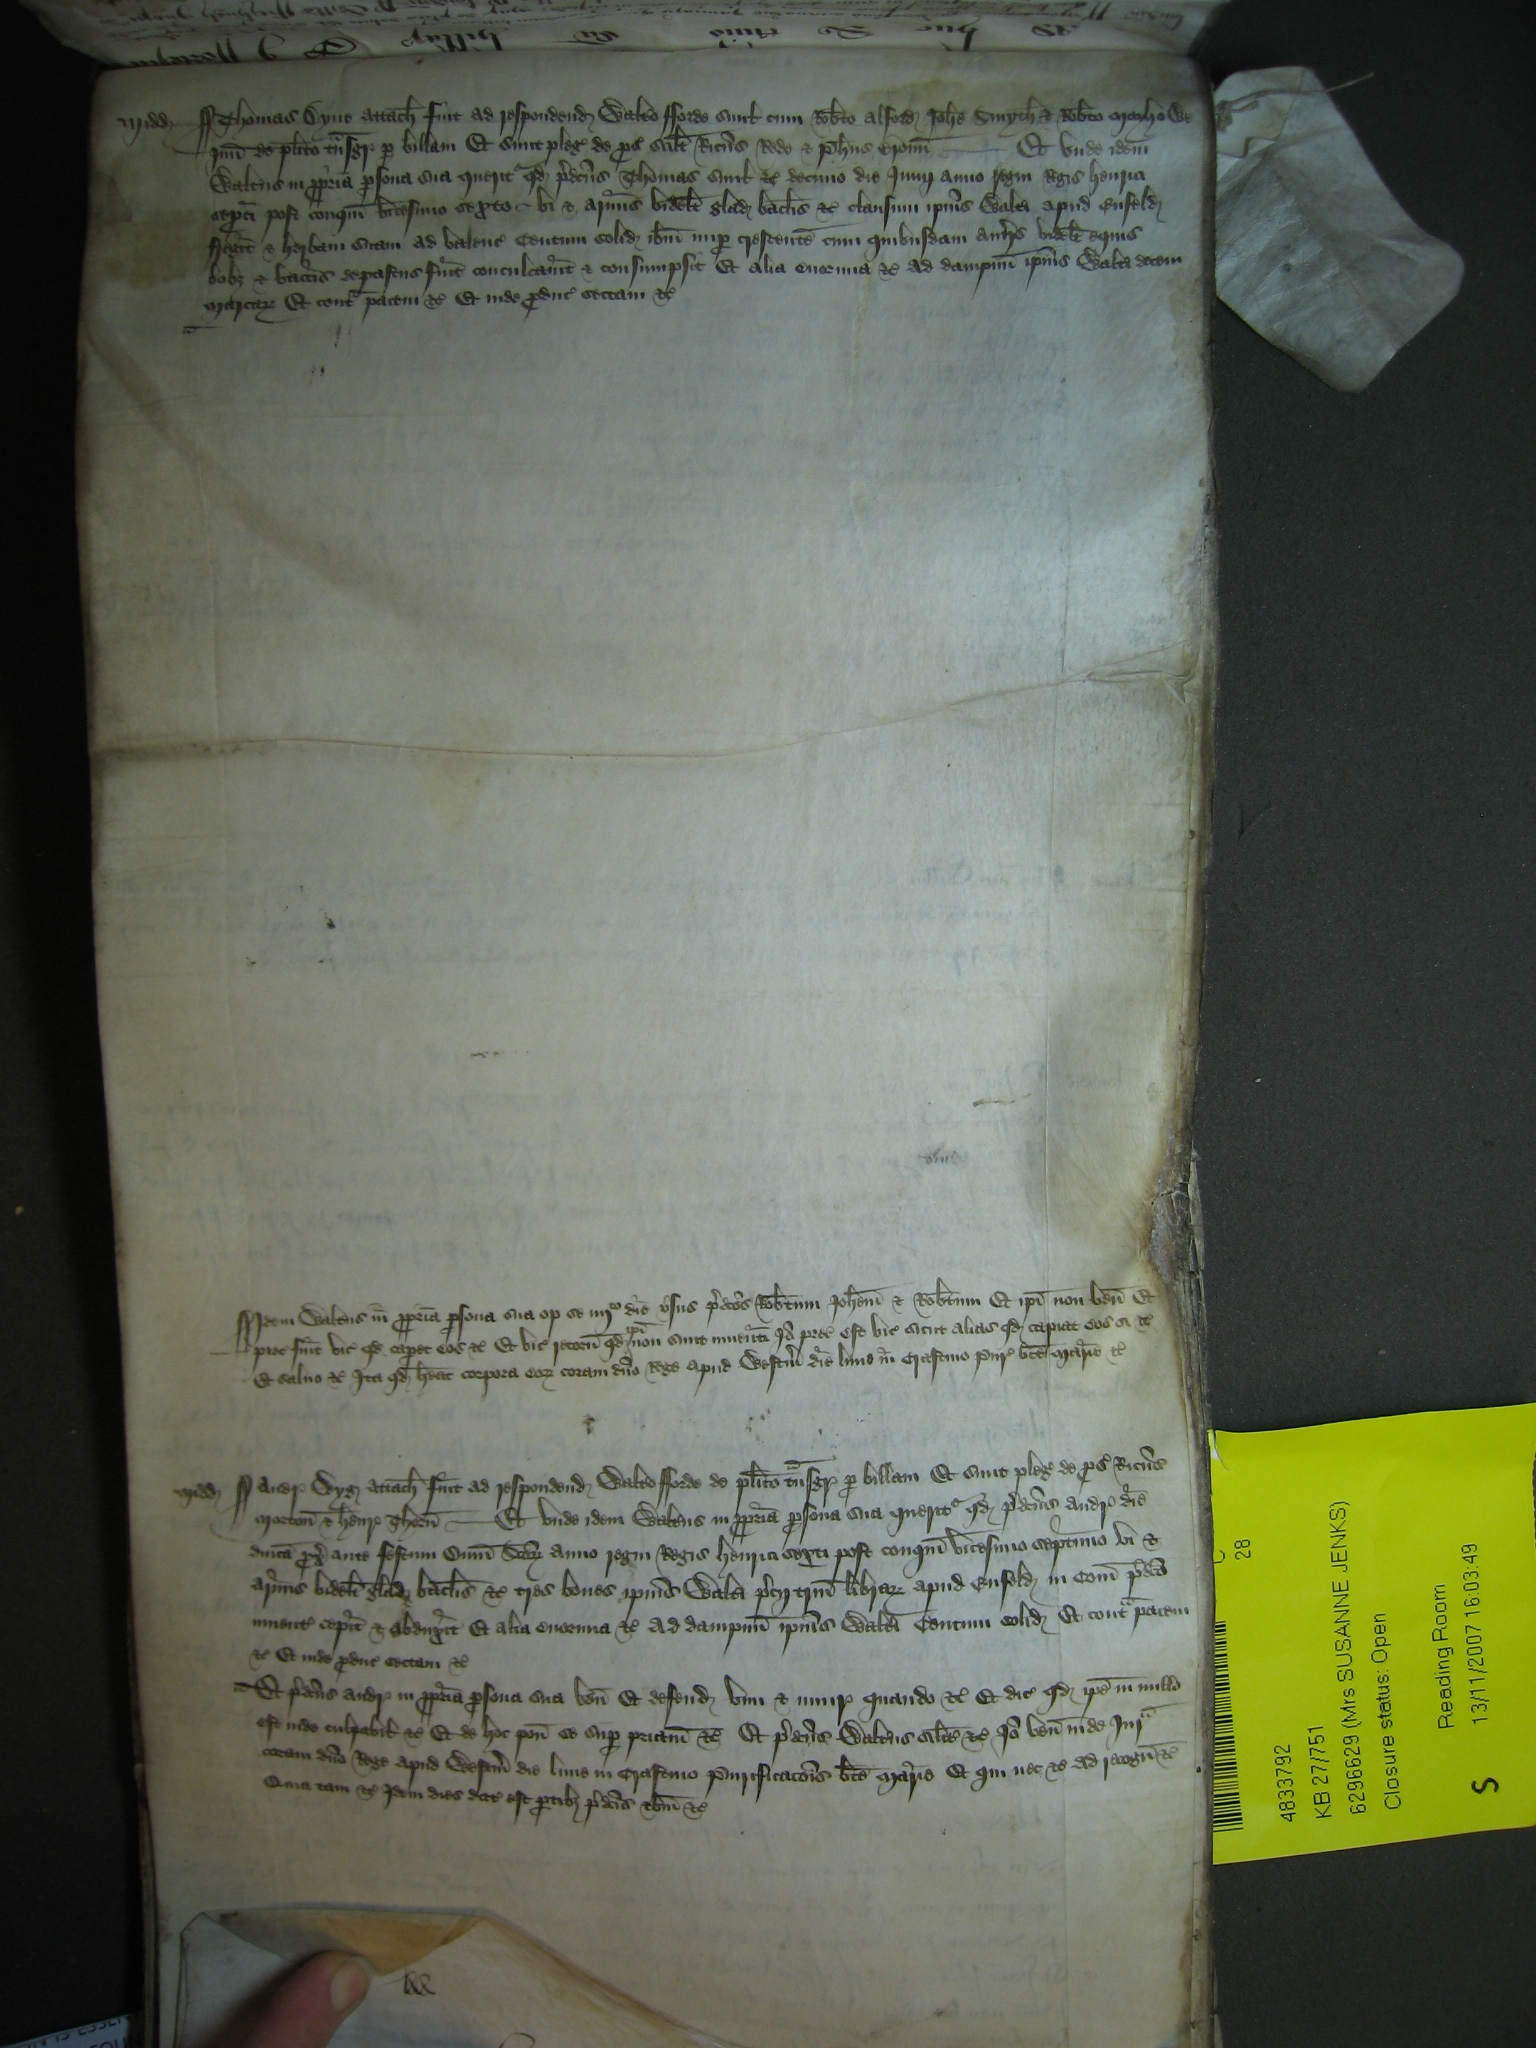 Midd Thomas Dyne attach fuit ad respondend Waltero fforde simul cum Robto Alford Johe Smyth & Robto
de plito tnsgr p billam Et sunt pleg de ps scilt Ricus Rede & Phus Et unde idem
Walterus in ppria psona sua querit qd pdcus Thomas simul &c decimo die Junij anno regni Regis Henrici
sexti post conqm vicesimo sexto vi & armis videlt glad baclis &c clausum ipius Walteri apud Enfeld
fregit & herbam suam ad valenc Centum solid ibm nup crescente cum quibusdam aver videlt equis
bobz & vaccis depascens fuit conculcavit & consumpsit Et alia enormia &c Ad dampnum ipius Walteri decem
marcar Et contra pacem &c Et inde pduc sectam &c
Idem Walterus in ppria psona sua op se iiijto die vsus pdcos Robtum Johem & Robtum Et ipi non ven Et
prec fuit vic qd caperet eos &c Et vic retorn qd ipi non sunt inventi Io prec est vic sicut alias qd capiat eos si &c
Et salvo &c Ita qd heat corpora eor coram dno Rege apud Westm die lune in Crastino Pur be Marie &c
Midd Andr Wyg attach fuit ad respondend Waltero fforde de plito tnsgr p billam Et sunt pleg de ps Ricus
Morton & Henr Thorn Et unde idem Walterus in ppria psona sua querit qd pdcus Andr die
dnica px ante festum Omi Scor anno regni Regis Henrici sexti post conqm vicesimo septimo vi &
armis videlt glad baclis &c tres boves ipius Walteri pcij trium librar apud Enfeld in Com pdco
invent cepit & abduxit Et alia enormia &c Ad dampnum ipius Walteri Centum solid Et contra pacem
&c Et inde pduc sectam &c
Et pdcus Andr in ppria psona sua ven Et defend vim & iniur quando &c Et dic qd ipe in nullo
est inde culpabil &c Et de hoc pon se sup priam &c Et pdcus Walterus silit &c Io ven inde Jur
coram dno Rege apud Westm die lune in Crastino Purificacois be Marie Et qui nec &c Ad recogn &c
Quia tam &c Idem dies dat est ptibz pdcis ibm &c
28
4833792
KB 27/751
6296629 (Mrs SUSANNE JENKS)
Closure status: Open
Reading Room
13/11/2007 16:03:49
S